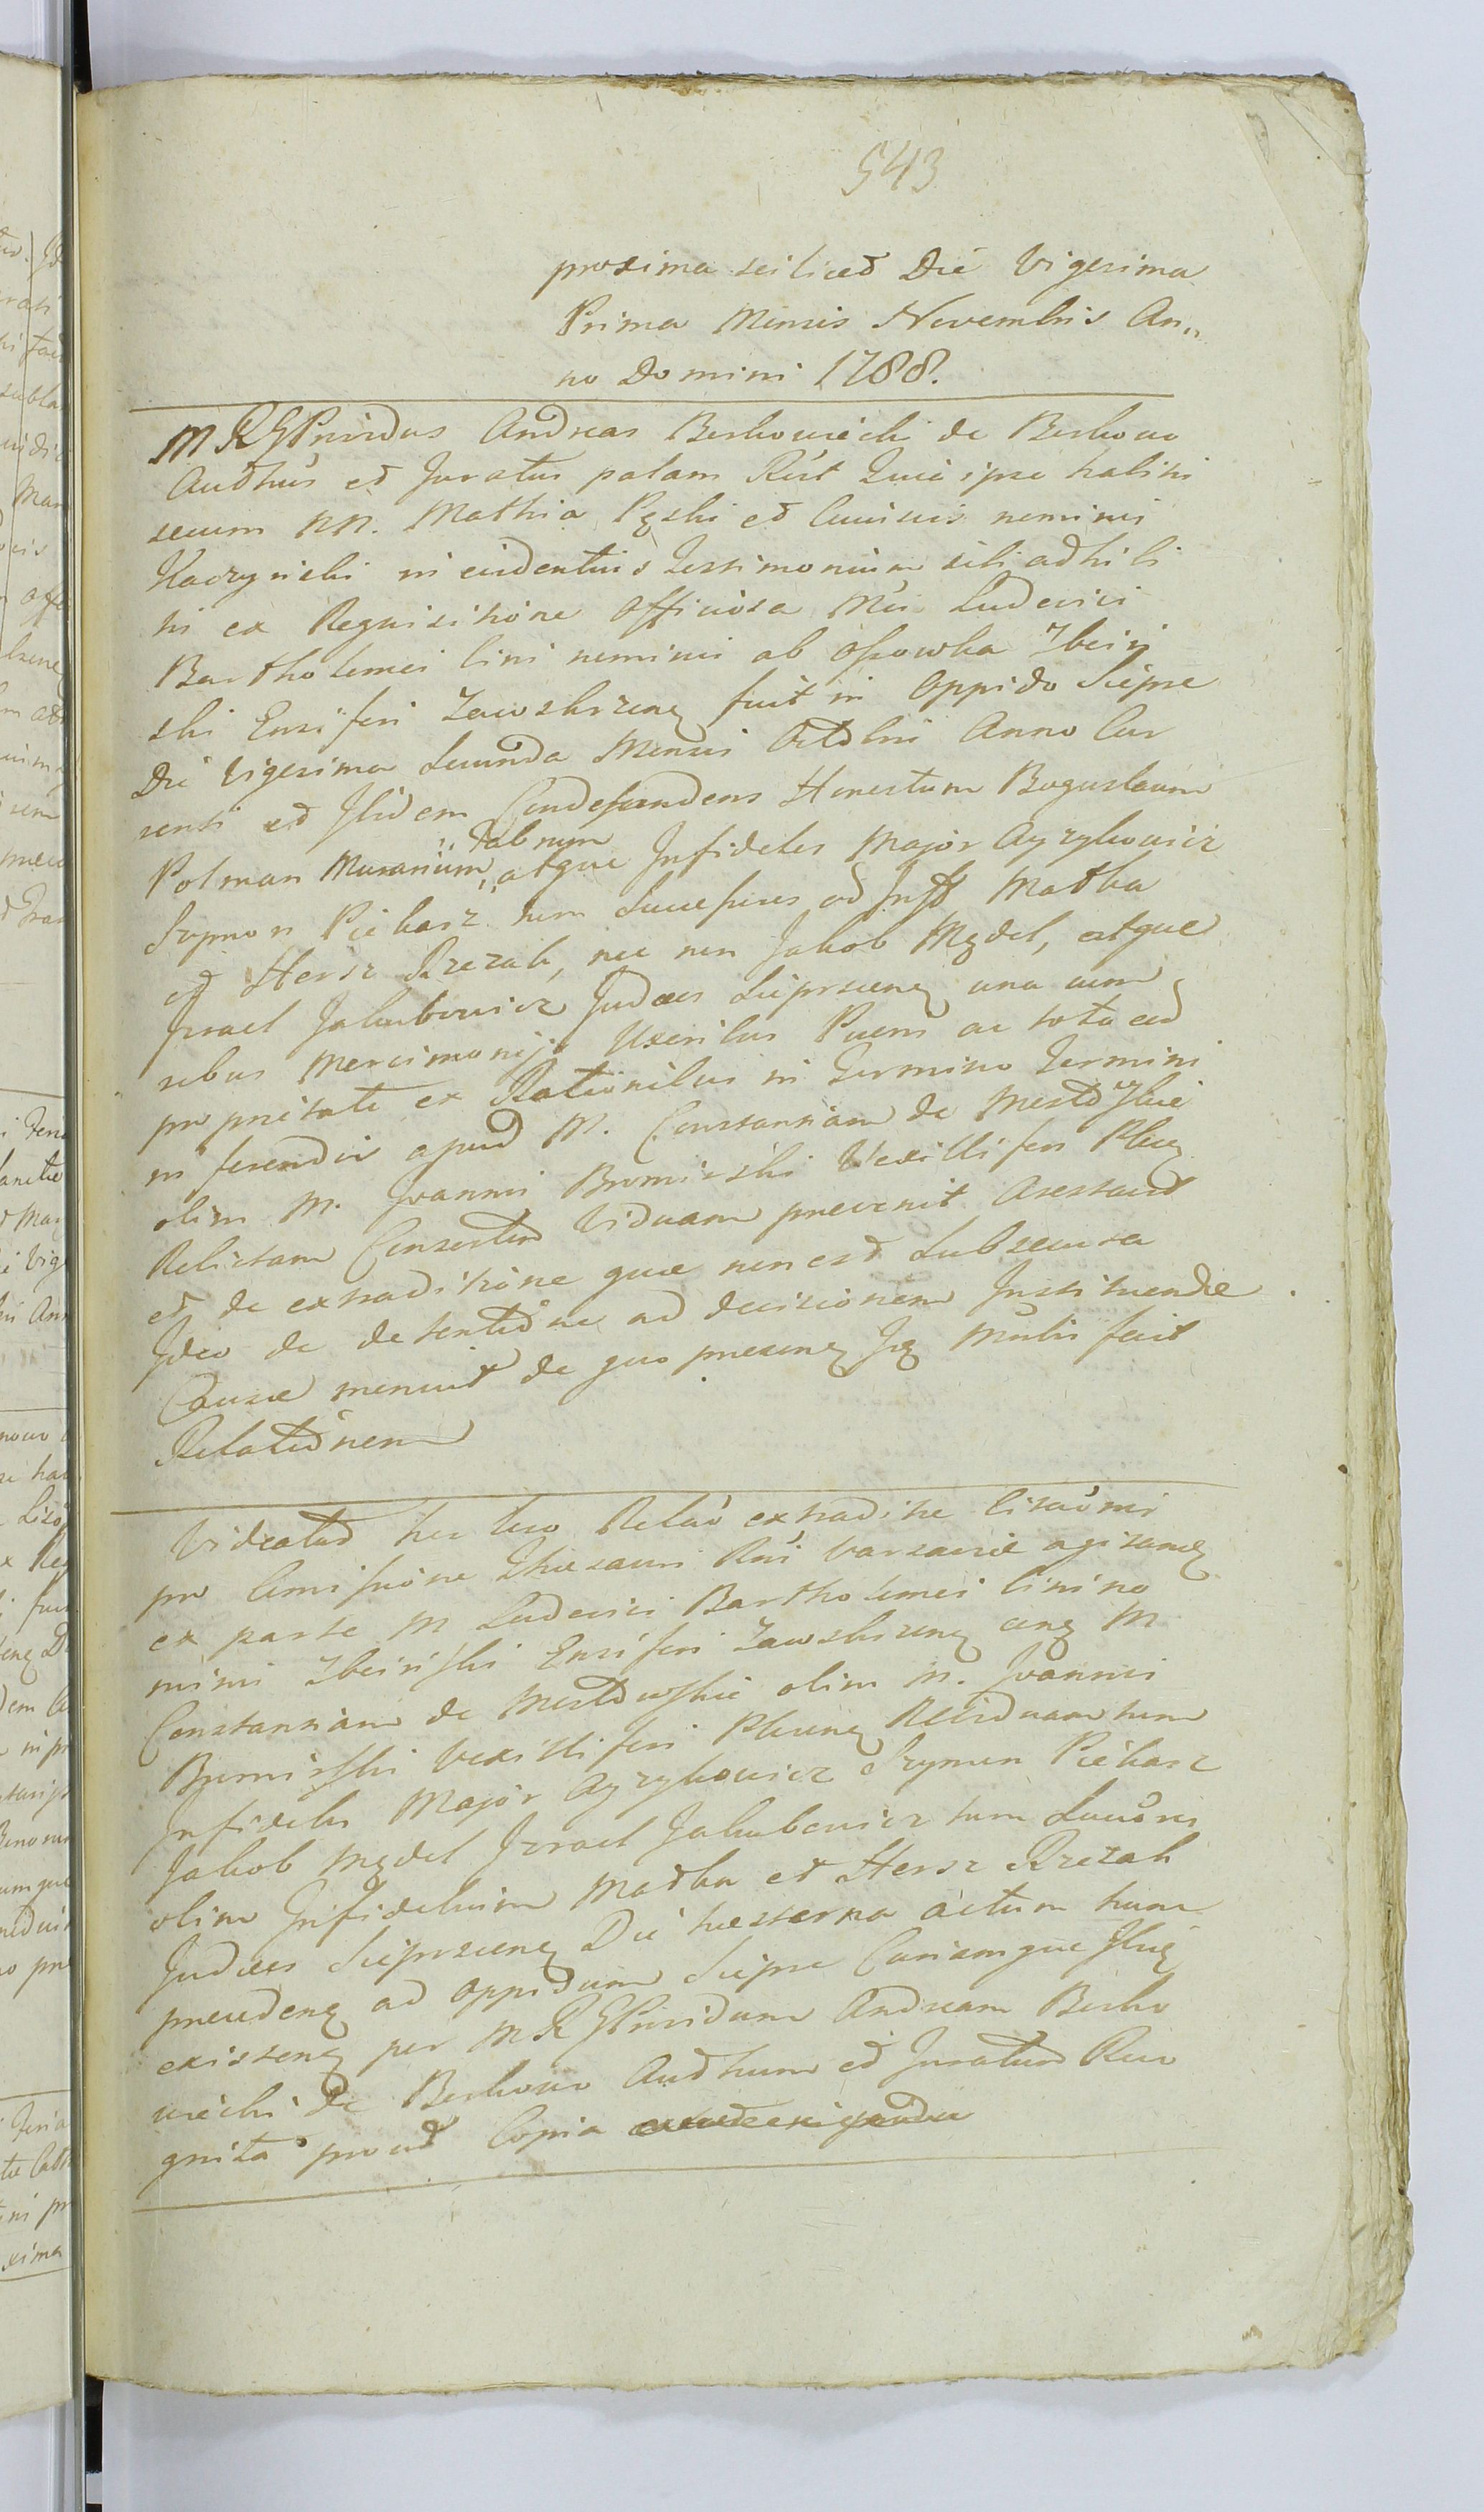 543
proxima scilicet Die Vigesima
Prima Mensis Novembris An„
no Domini 1788.
M R G Pnvidus Andreas Berkowiecki de Berkowo
Authus et Juratus palam Rcit Quie ipse habitis
secum NN. Mathia Pęski et Cuiusvis nominis
Kaczynski in evidentius Testimonium sibi adhibi
tis ex Requisitione Officiosa Mci Ludovici
Bartholomei bini nominis ab Ossowka Zboiń
ski Ensiferi Zawskrzenę fuit in Oppido Sieprc
Die Vigesima Secunda Mensis Octobris Anno Cur
renti et Ibidem Condescendens Honestum Boguslaum
Polman Murarium „Fabrum„ atque Infideles Major Ayzykowicz
Szymon Piekarz tum Successores ad Inft Matka
et Hersz Rzezak, nec non Jakob Mydel, atque
Izrael Jakubowicz Judæos Sieprcienę una cum
rebus Mercimonijs Uxoribus Pueris ac tota eor
proprietate ex Rationibus in Termino Termini
in ferendis apud M. Constantiam de Mesto
olim M. Joannis Bromirski Vexilliferi Plocę
Relictam Consortem Viduam prevenit Arestavit
et de extraditione quæ non est Subsecuta
Ideo de detentione ad decisionem Instituendæ
Causæ monuit de quo presenę Ję Mńlis fecit
Relationem
Videatur hoc loco Relao extraditæ Citaõnis
pro Comissione Thesauri Rni Varsaviæ agitanę
ex parte M Ludovici Bartholomei bini no
minis Zboińskі Ensiferi Zawskrzenę cunę M
Constantiam de Mestowskie olim M. Joannis
Bromirski Vexilliferi Plocenę Relictam Viduam tum
Infideles Major Ayzykowicz Szymon Piekarz
Jakob Mydel Izrael Jakubowicz tum Succõres
olim Infidelium Matka et Hersz Rzezak
Judæos Sieprcienę Die hesterna actum hunc
precedenę ad Oppidum Sieprc Curiamque Ibię
existenę per M R G Pnvidum Andream Berko
wiecki de Berkowo Authum et Juratum Reco
gnita prout Copia